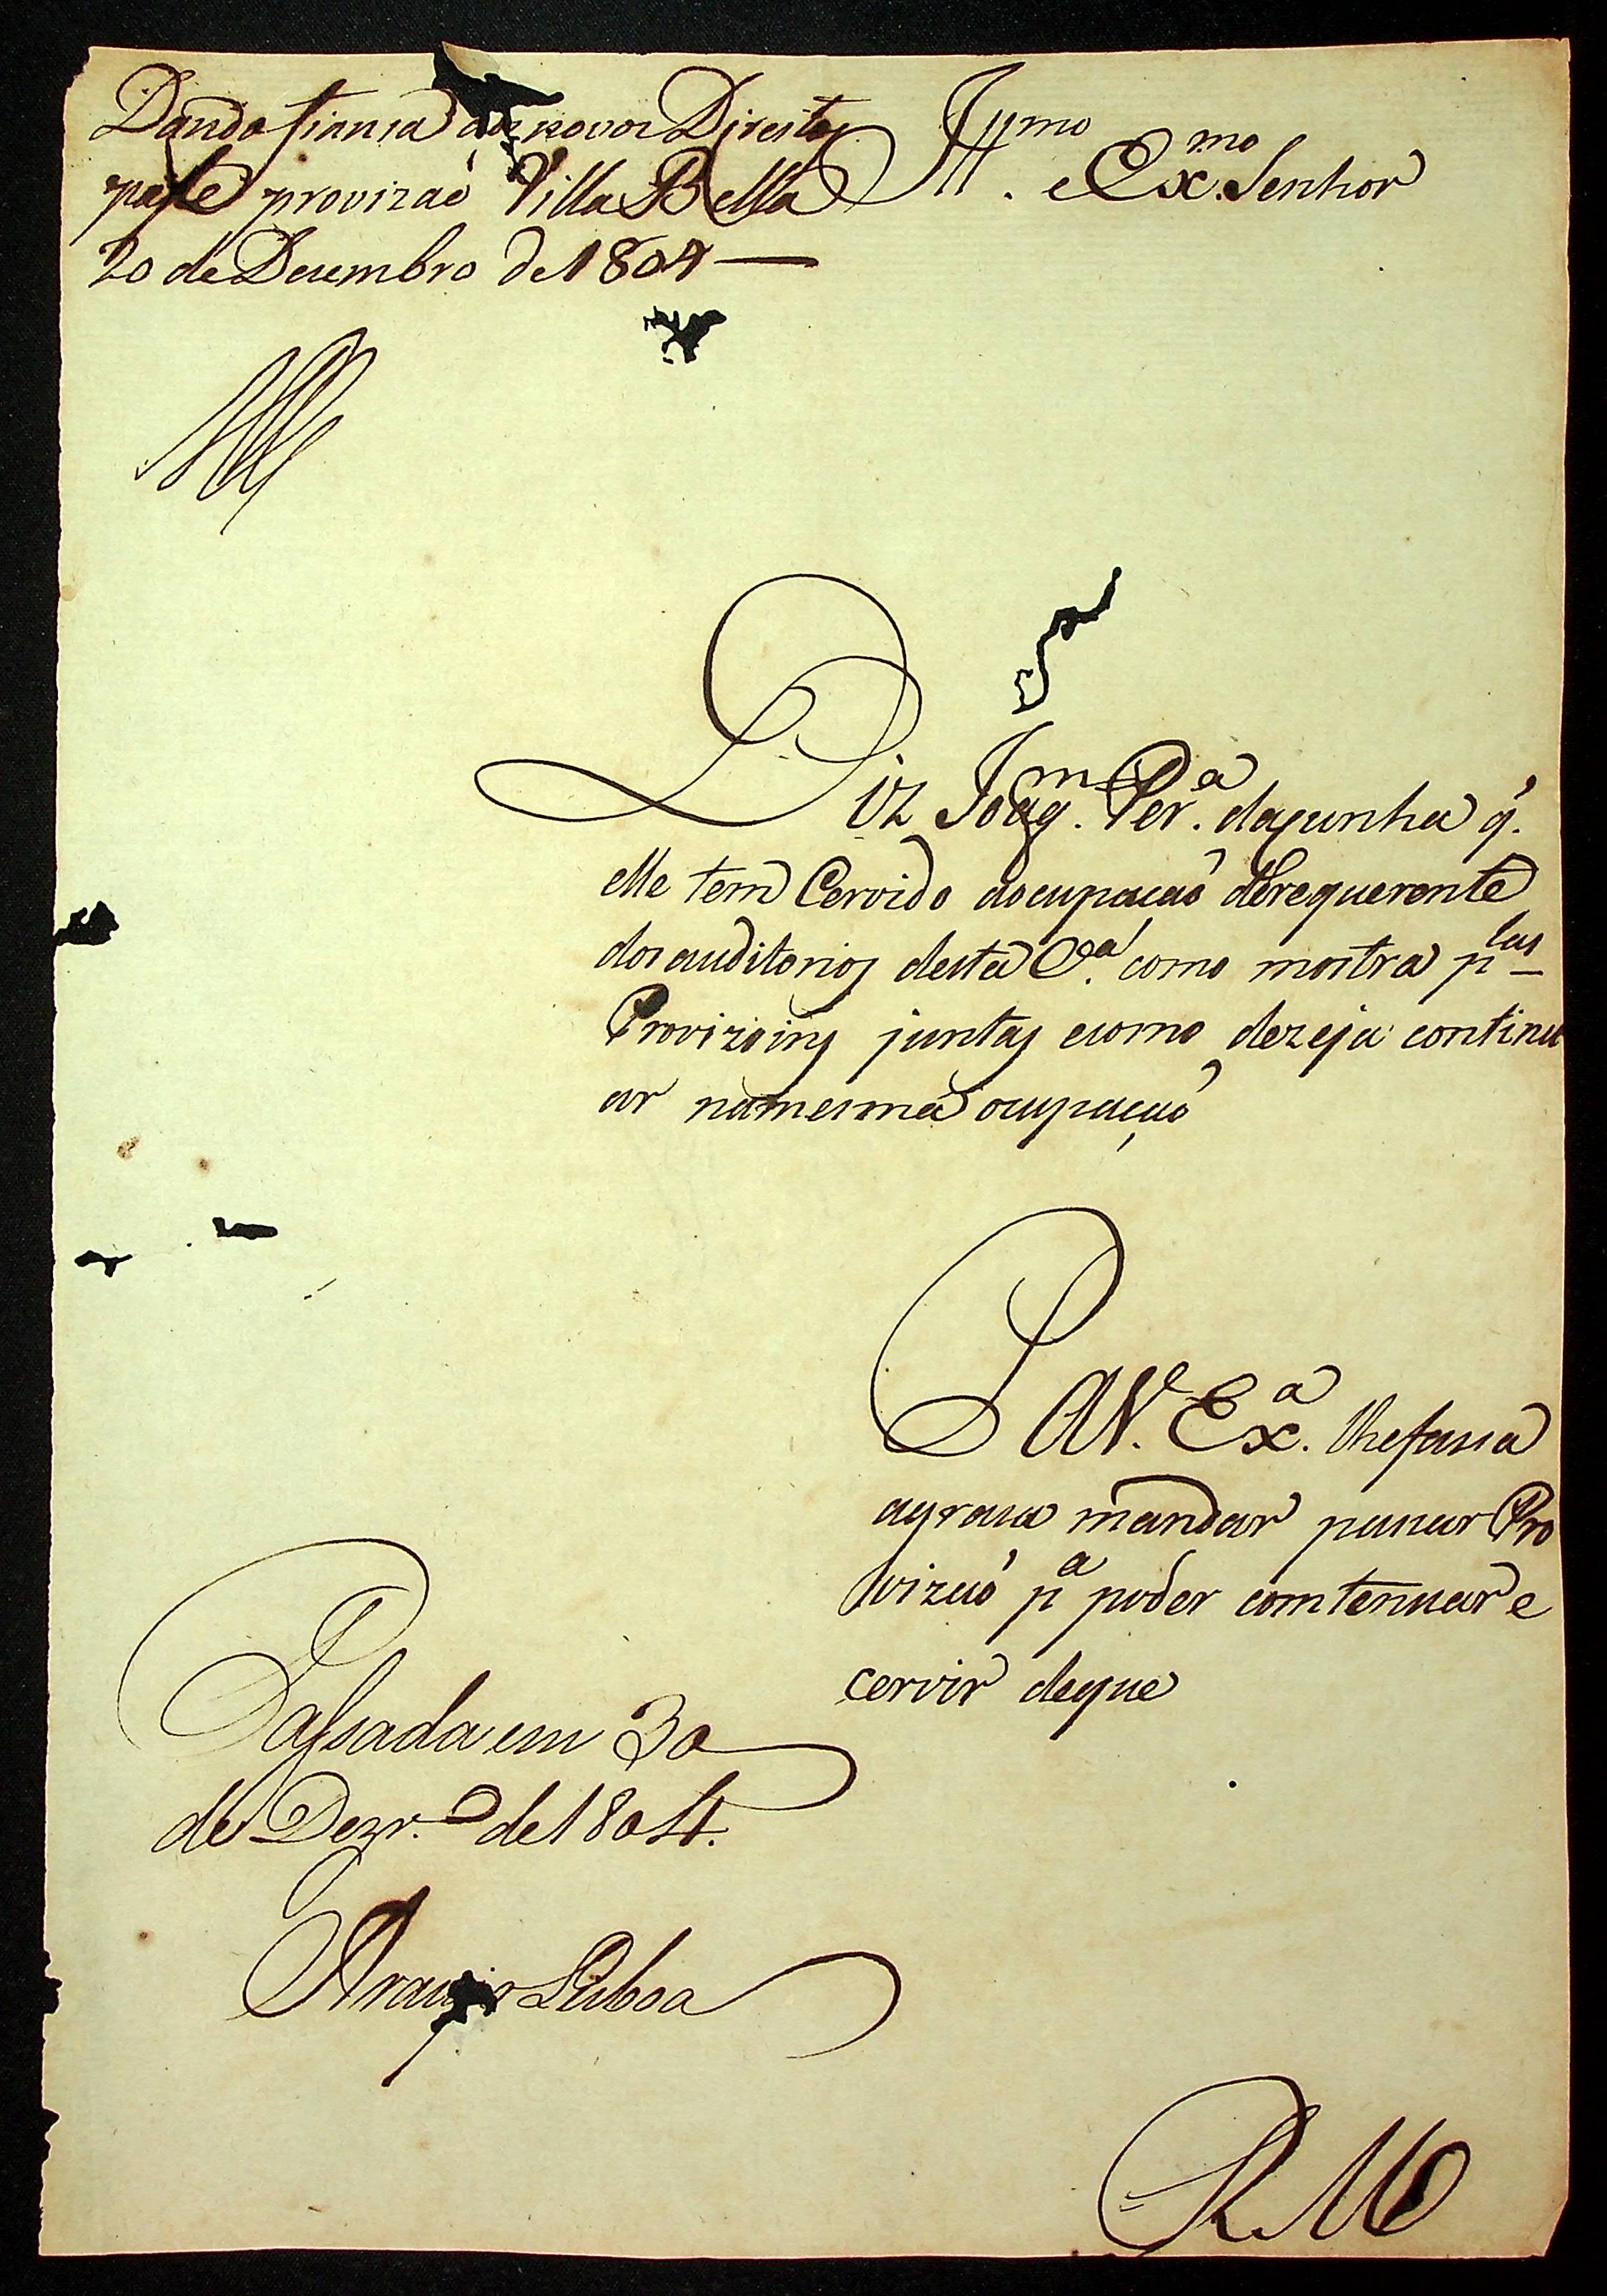 Dando fiansa aos novos Direitos
passe provizaõ Villa Bella
20 de Desembro de 1804
Illmo. e Exmo. Senhor
Diz Joaqm. Perª. dacunha q̃.
elle tem Cervido aocupacaõ derequerente
dos auditorios desta Cª. como mostra plas
Provizoins juntas ecomo dezeja continu
ar namesma ocupaçaõ
P AV. Exª. lhefassa
agrasa mandar passar Pro
vizaõ pª poder comtenuar e
cervir deque
Passada em 30
de Dezr.º de 1804.
Araujo Lisboa
R M